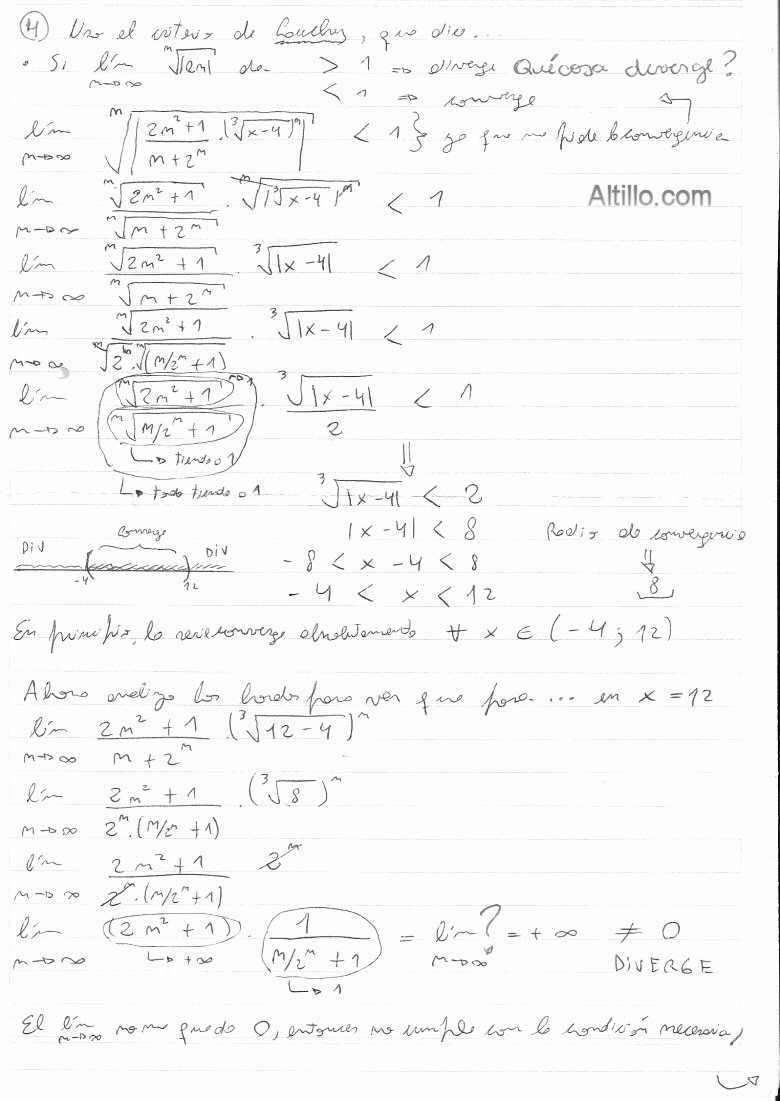 4) Uso el criterio de Cauchy, que dice...
• Si lím n→∞ ⁿ√|an| da > 1 ⇒ diverge Quécosa diverge?
< 1 ⇒ converge
lím n→∞ ⁿ√|(2n²+1)/(n+2ⁿ) · (³√(x-4))ⁿ| < 1 } ya que me pide la convergencia
Altillo.com
lím n→∞ ⁿ√(2n²+1) / ⁿ√(n+2ⁿ) · ⁿ√(|³√(x-4)|ⁿ) < 1
lím n→∞ ⁿ√(2n²+1) / ⁿ√(n+2ⁿ) · ³√|x-4| < 1
lím n→∞ ⁿ√(2n²+1) / (ⁿ√2ⁿ · ⁿ√(n/2ⁿ+1)) · ³√|x-4| < 1
lím n→∞ ⁿ√(2n²+1) →1 / ⁿ√(n/2ⁿ+1) · ³√|x-4| / 2 < 1
↳ tiende a 1
⇓
↳ todo tiende a 1 ³√|x-4| < 2
|x-4| < 8
Converge
DIV DIV
-4 12
-8 < x-4 < 8
-4 < x < 12
Radio de convergencia
⇓
8
En principio, la serie converge absolutamente ∀ x ∈ (-4; 12)
Ahora analizo los bordes para ver que pasa... en x = 12
lím n→∞ (2n²+1)/(n+2ⁿ) · (³√(12-4))ⁿ
lím n→∞ (2n²+1)/(2ⁿ·(n/2ⁿ+1)) · (³√8)ⁿ
lím n→∞ (2n²+1)/(2ⁿ·(n/2ⁿ+1)) 2ⁿ
lím n→∞ (2n²+1) · 1/(n/2ⁿ+1) = lím n→∞ ? = +∞ ≠ 0
↳ +∞ ↳ 1 DIVERGE
El lím n→∞ no me quedo 0, entonces no cumple con la condición necesaria,